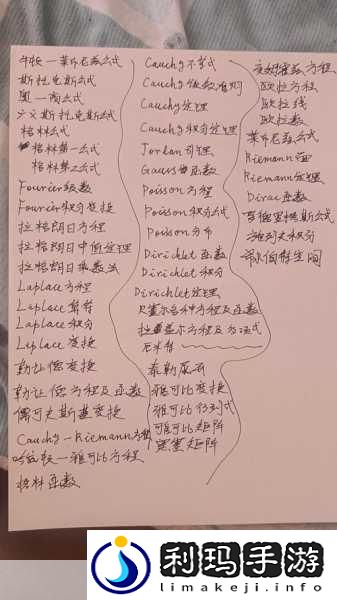 牛顿—莱布尼兹公式
斯托克斯公式
奥—高公式
广义斯托克斯公式
格林公式
格林第一公式
格林第二公式
Fourier级数
Fourier积分变换
拉格朗日方程
拉格朗日中值定理
拉格朗日乘数法
Laplace方程
Laplace算符
Laplace积分
Laplace变换
勒让德变换
勒让德方程及函数
儒可夫斯基变换
Cauchy—Riemann方程
哈密顿—雅可比方程
格林函数
Cauchy不等式
Cauchy级数准则
Cauchy定理
Cauchy积分定理
Jordan引理
Gauss函数
Poisson方程
Poisson积分公式
Poisson分布
Dirichlet函数
Dirichlet积分
Dirichlet定理
贝塞尔各种方程及函数
拉盖尔方程及多项式
厄米特
泰勒展开
雅可比变换
雅可比行列式
雅可比矩阵
黑塞矩阵
欧拉方程
欧拉线
欧拉数
莱布尼兹公式
Riemann面
Riemann定理
Dirac函数
希尔伯特空间
利玛手游
limakeji.info